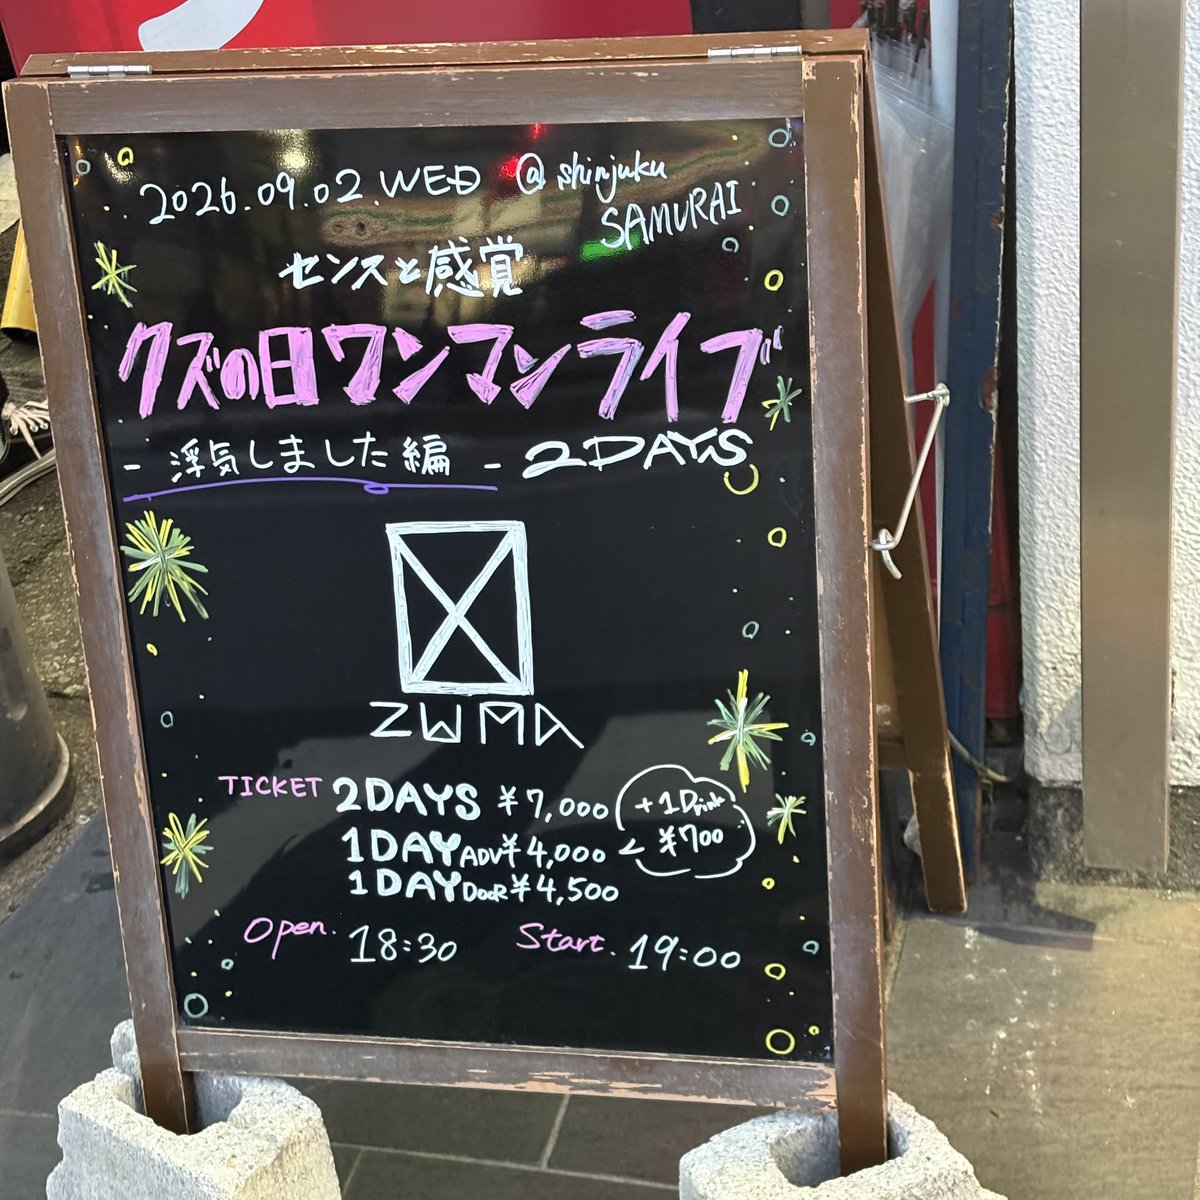 2026.09.02.WED @ shinjuku
SAMURAI
センスと感覚
クズの日ワンマンライブ
- 浮気しました編 - 2DAYS
ZWMA
TICKET 2DAYS ¥7,000
1DAY ADV ¥4,000
1DAY DOOR ¥4,500
+1Drink
¥700
Open. 18:30 Start. 19:00